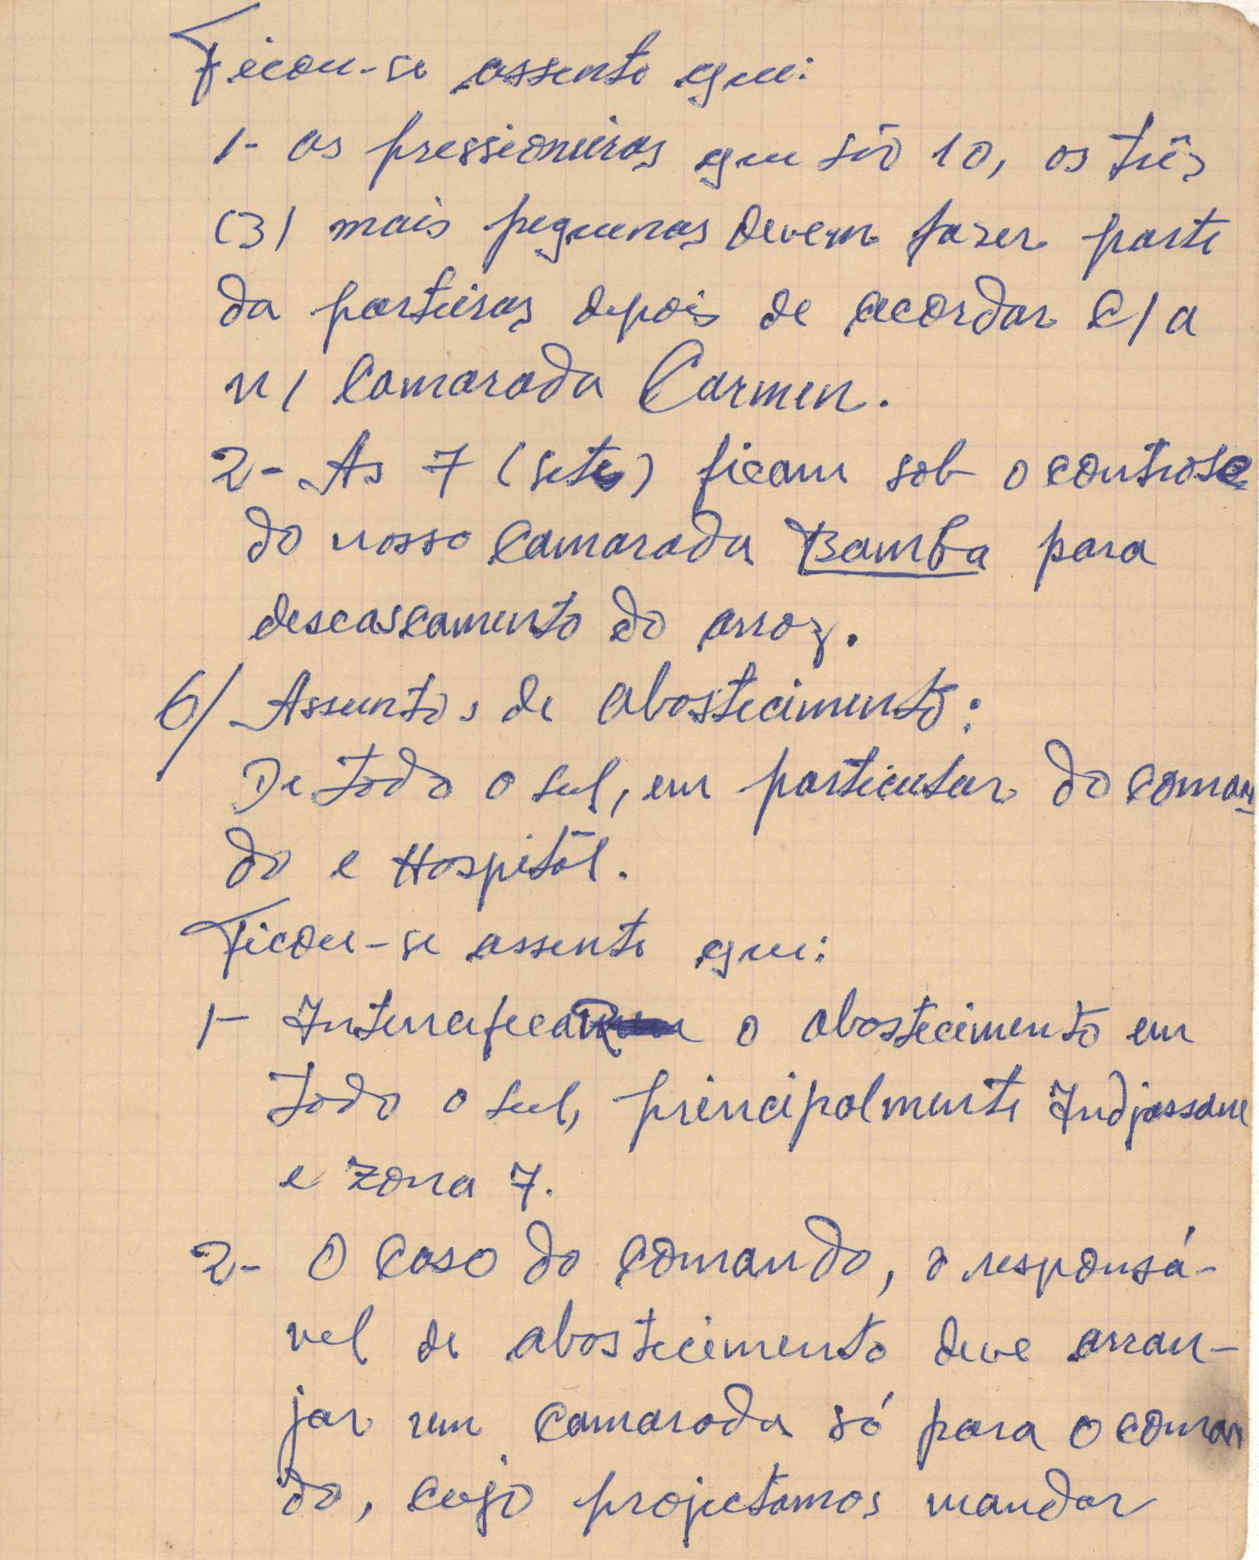 Ficou-se assente que:
1- as pressioneiras que são 10, os três
(3) mais pequenas devem fazer parte
da parteiras depois de acordar c/a
n/ Camarada Carmen.
2- As 7 (sete) ficam sob o controle
do nosso Camarada Bamba para
descascamento do arroz.
6/ Assuntos de abastecimento:
De todo o sul, em particular do coman
do e Hospital.
Ficou-se assente que:
1- Intensificar o abastecimento em
todo o sul, principalmente Indjassane
e zona 7.
2- O caso do comando, o responsá-
vel de abastecimento deve arran-
jar um camarada só para o coman
do, cujo projectamos mandar